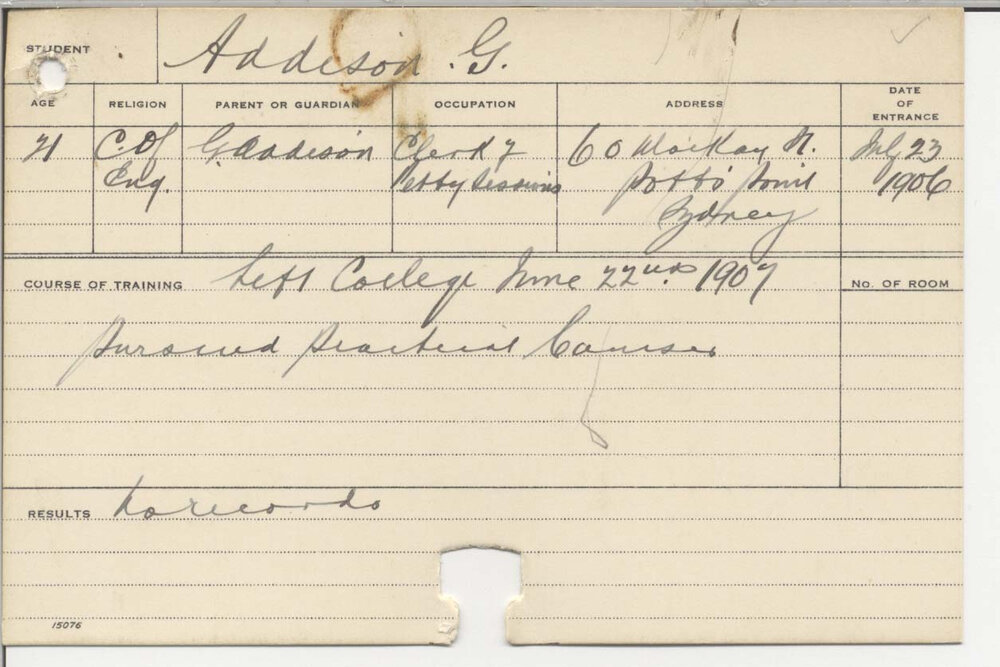 STUDENT Addison. G.
AGE RELIGION PARENT OR GUARDIAN OCCUPATION ADDRESS DATE OF ENTRANCE
21 C. Of G. Addison Clerk of 60 MacKay St. July 23
Eng. Petty Sessions Potts Point 1906
Sydney
COURSE OF TRAINING Left College June 22nd 1907 No. OF ROOM
Pursued Practical Courses
RESULTS No records
15076